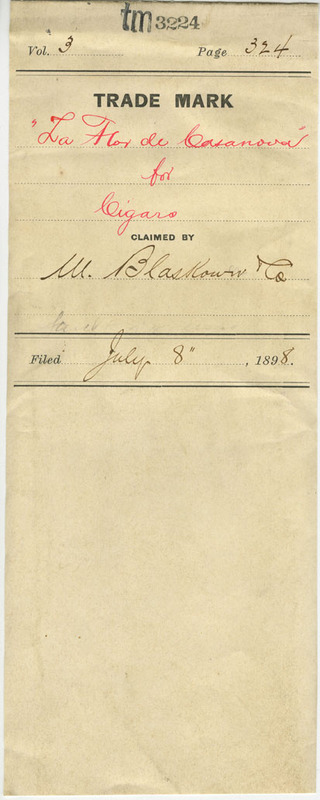 tm 3224
Vol. 3 Page 324
TRADE MARK
"La Flor de Casanova"
for
Cigars
CLAIMED BY
M. Blaskower Co
Filed July 8" , 1898.